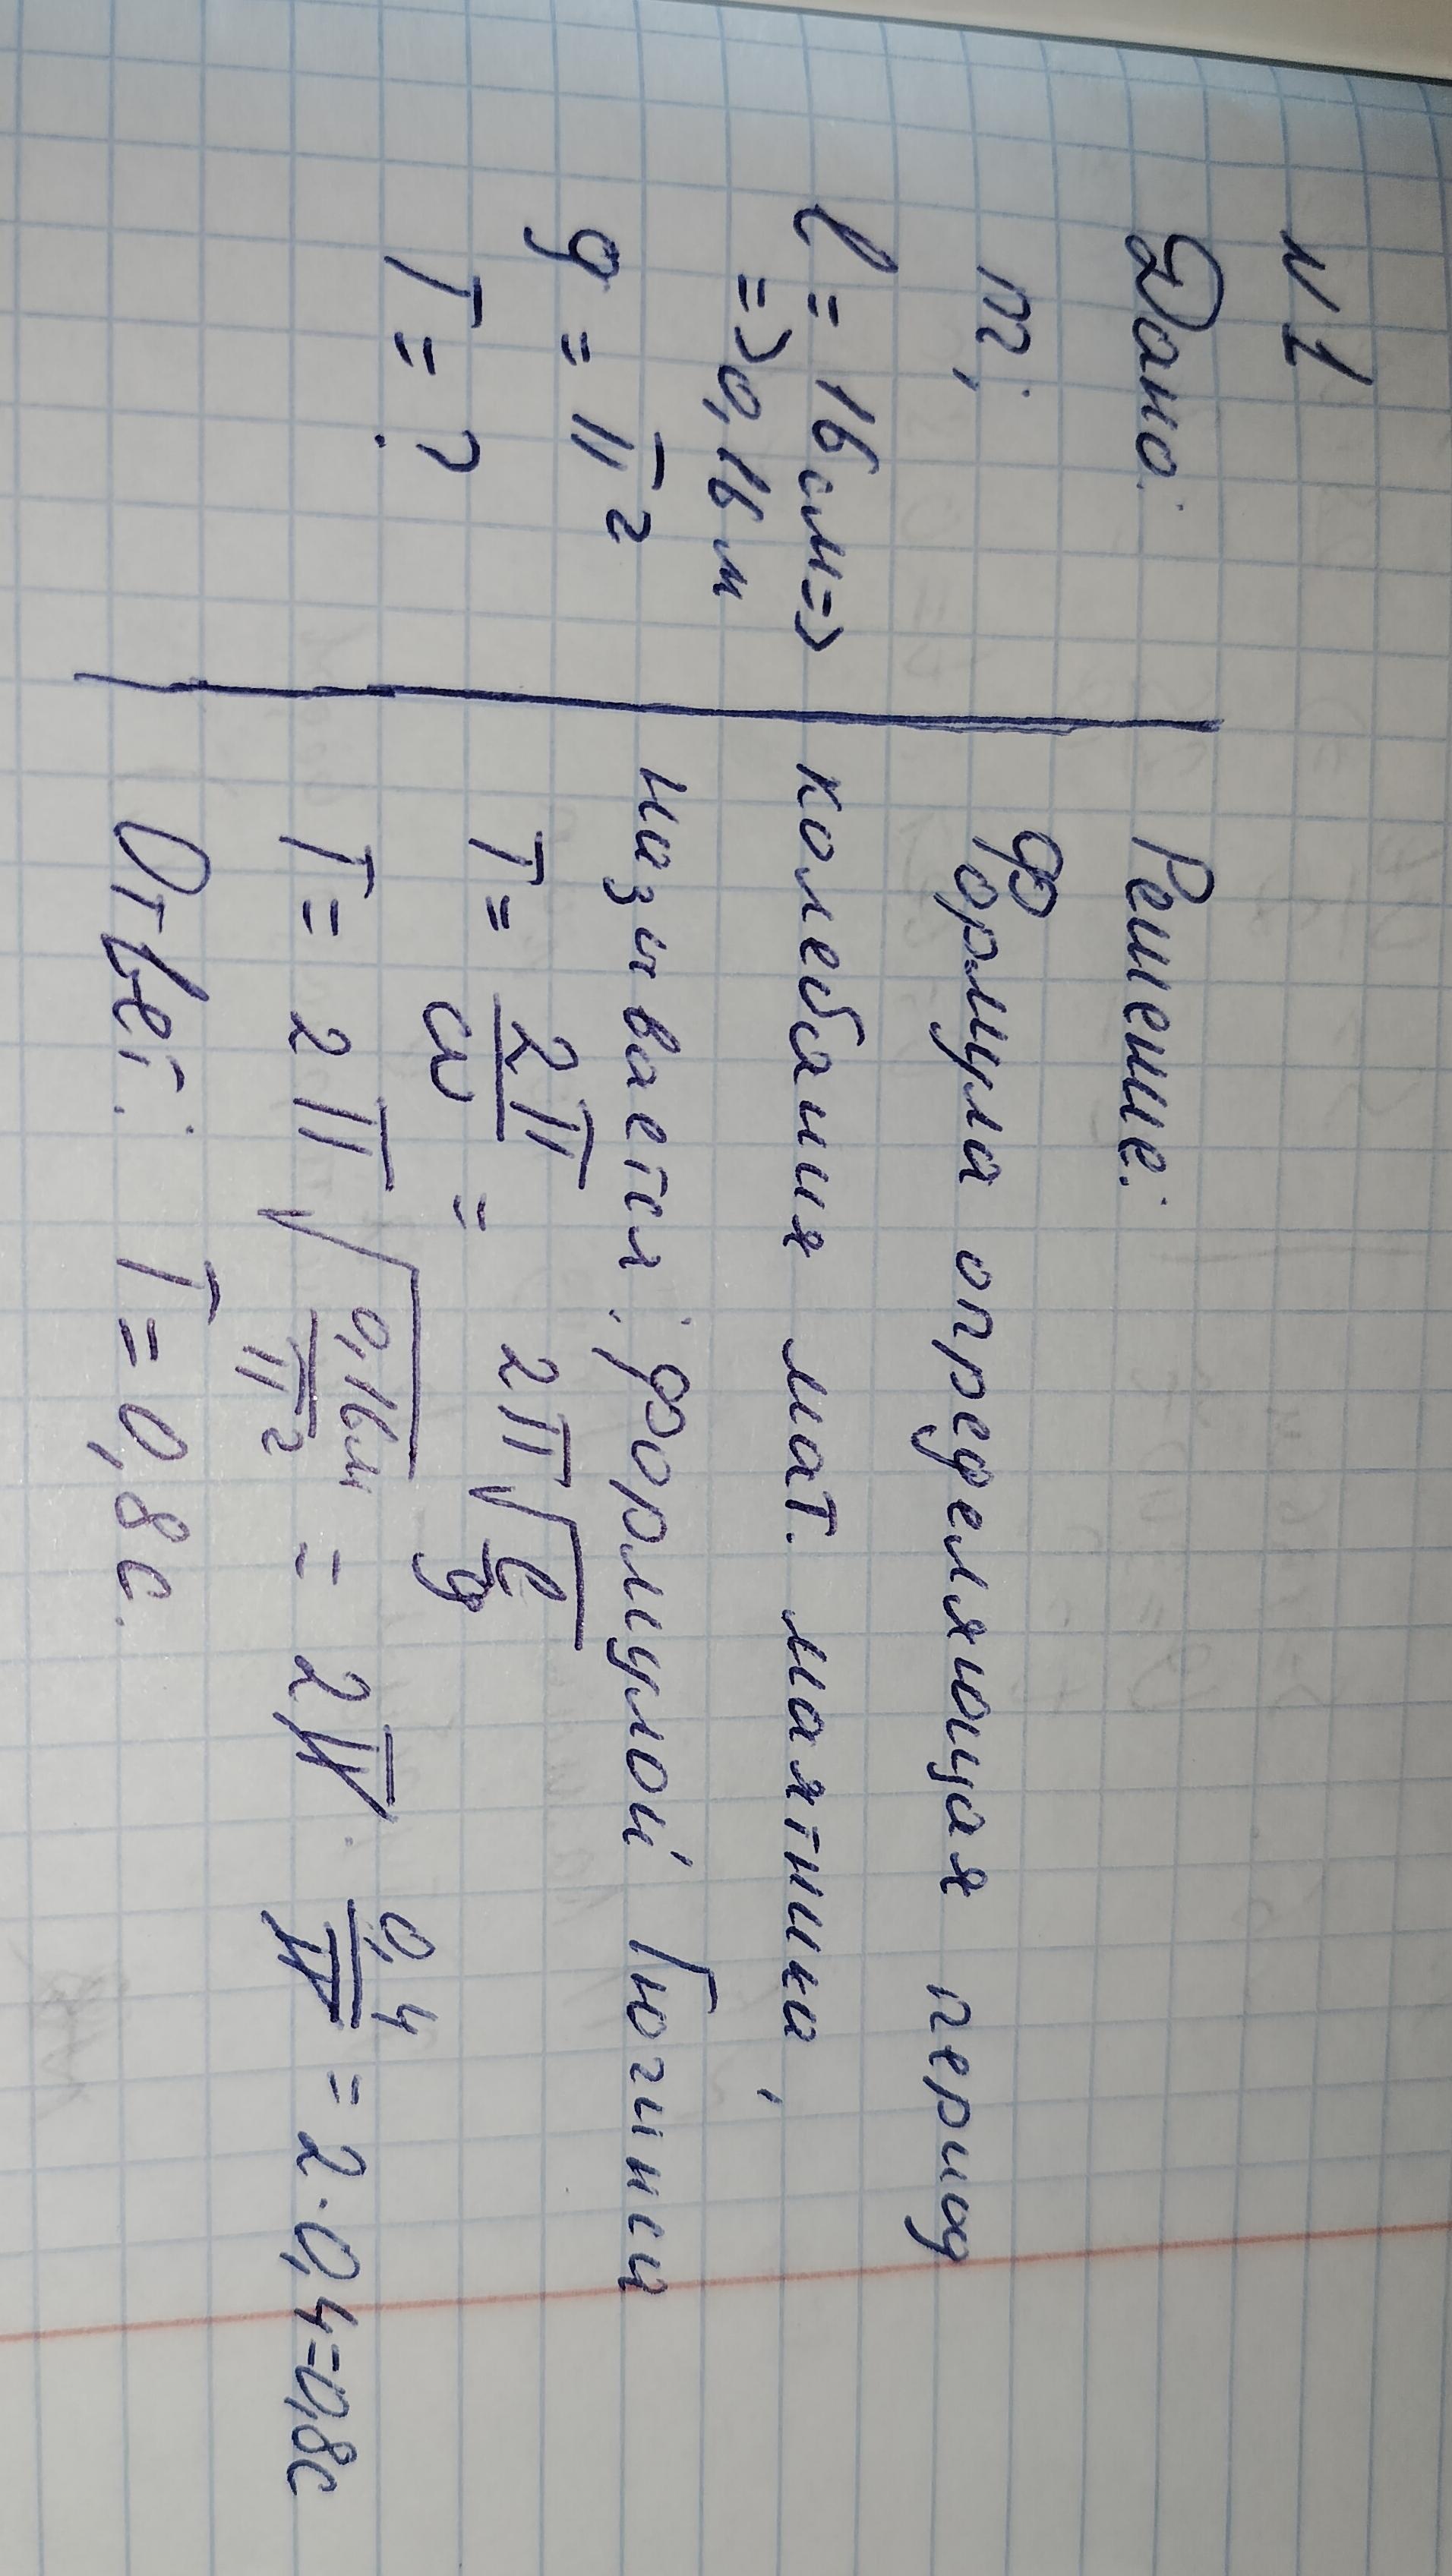 №1
Дано:
m;
l = 16 см =>
=> 0,16 м
g = π²
T = ?
Решение:
Формула определяющая период
колебания мат. маятника,
называется: формулой Гюгинси
T = 2π/ω = 2π√(l/g)
T = 2π√(0,16м/π²) = 2π · 0,4/π = 2·0,4=0,8с
Ответ: T = 0,8 с.